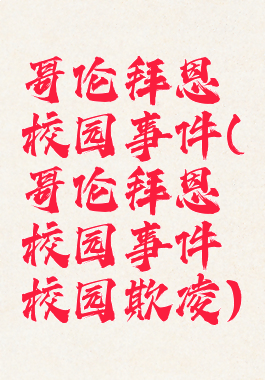 哥伦拜恩
校园事件(
哥伦拜恩
校园事件
校园欺凌)